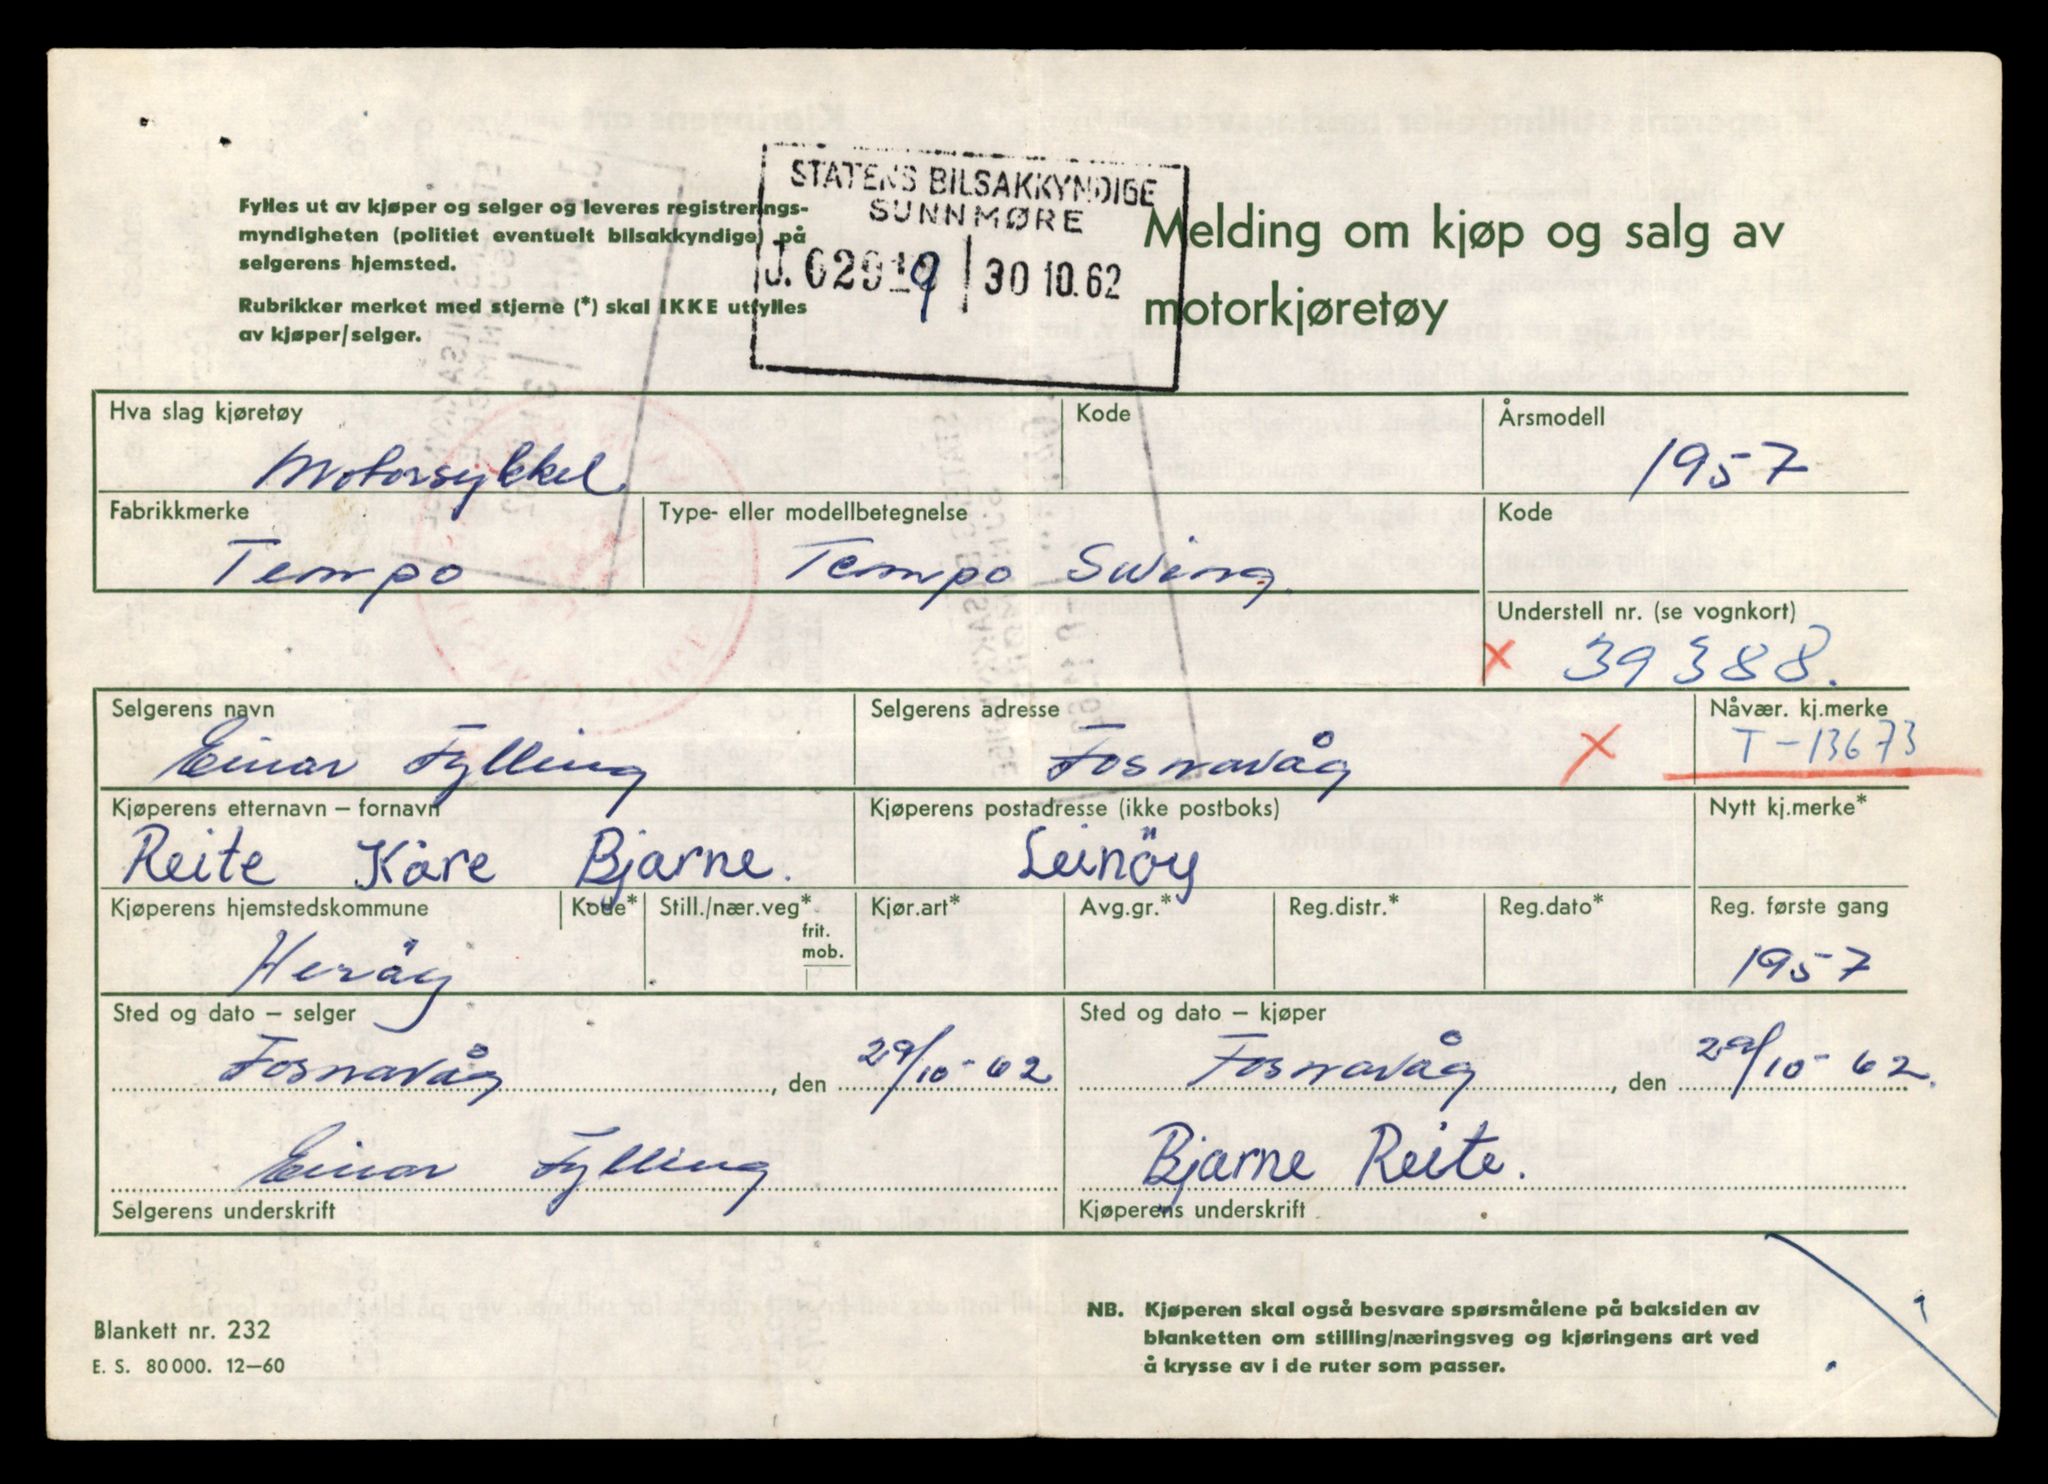 Fylles ut av kjøper og selger og leveres registrerings-
myndigheten (politiet eventuelt bilsakkyndige) på
selgerens hjemsted.
Rubrikker merket med stjerne (*) skal IKKE utfylles
av kjøper/selger.
STATENS BILSAKKYNDIGE
SUNNMØRE
J. 02919 30 10.62
Melding om kjøp og salg av
motorkjøretøy
Hva slag kjøretøy Kode Årsmodell
Motorsykkel 1957
Fabrikkmerke Type- eller modellbetegnelse Kode
Tempo Tempo Swing.
Understell nr. (se vognkort)
x 39388.
Selgerens navn Selgerens adresse Nåvær. kj.merke
Einar Fylling Fosnavåg x T-13673
Kjøperens etternavn – fornavn Kjøperens postadresse (ikke postboks) Nytt kj.merke*
Reite Kåre Bjarne. Leinöy
Kjøperens hjemstedskommune Kode* Still./nær.veg* frit. mob. Kjør.art* Avg.gr.* Reg.distr.* Reg.dato* Reg. første gang
Heröy 1957
Sted og dato – selger Sted og dato – kjøper
Fosnavåg, den 29/10-62 Fosnavåg, den 29/10-62.
Einar Fylling Bjarne Reite.
Selgerens underskrift Kjøperens underskrift
NB. Kjøperen skal også besvare spørsmålene på baksiden av
blanketten om stilling/næringsveg og kjøringens art ved
å krysse av i de ruter som passer.
Blankett nr. 232
E. S. 80000. 12—60